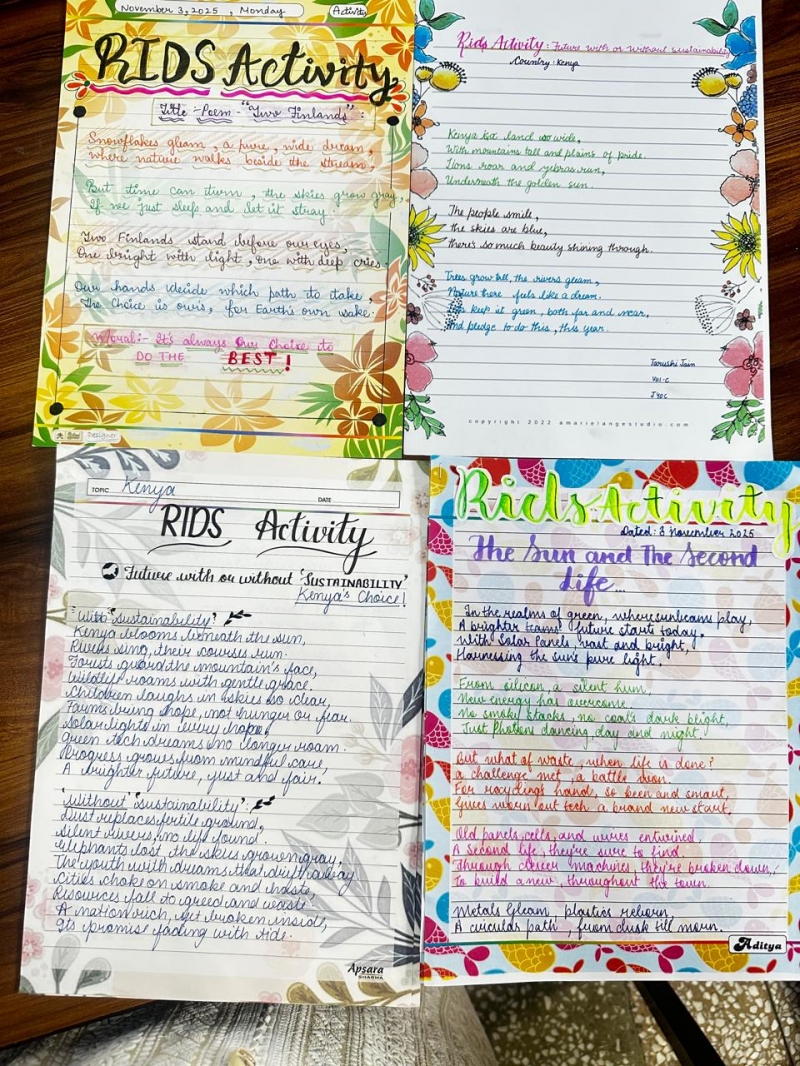 November 3, 2025 , Monday
Activity
RIDS Activity
Title :- Poem - "Two Finlands" :
Snowflakes gleam , a pure , wide dream,
where nature walks beside the stream.
But time can turn , the skies grow gray,
If we just sleep and let it stray.
Two Finlands stand before our eyes,
One bright with light , one with deep cries.
Our hands decide which path to take,
The choice is ours, for Earth's own wake.
Moral:- It's always Our Choice to
DO THE BEST!
Designer
Rids Activity : Future with or without sustainability
Country : Kenya
Kenya land so wide,
With mountains tall and plains of pride.
Lions roar and zebras run,
Underneath the golden sun.
The people smile,
the skies are blue,
there's so much beauty shining through.
Trees grow tall, the rivers gleam,
Nature there feels like a dream.
keep it green, both far and near,
And pledge to do this , this year.
Tarushi Jain
VIII-C
copyright 2022 amarielangestudio.com
TOPIC Kenya
DATE
RIDS Activity
Future with or without 'SUSTAINABILITY'
Kenya's Choice!
"With" Sustainability?
Kenya blooms beneath the sun,
Rivers sing, their courses run.
Forests guard the mountain's face,
Wildlife roams with gentle grace.
Children laugh in skies so clear,
Farms bring hope, not hunger or fear.
Solar lights in every
Green tech dreams no longer roam.
Progress grows from mindful care,
A brighter future, just and fair.
"Without" Sustainability?
Dust replaces fertile ground,
Silent rivers, no life found.
Elephants lost, the skies grown gray,
The youth with dreams that drift away.
Cities choke on smoke and haste,
Resources fall to greed and waste.
A nation rich, yet broken inside,
Its promise fading with tide.
Apsara
Rids Activity
Dated : 3 November 2025
The Sun and The Second
Life...
In the realms of green, where sunbeams play,
A brighter future starts today.
With Solar Panels, vast and bright,
Harnessing the sun's pure light.
From silicon, a silent hum,
New energy has overcome.
No smoky stacks, no coal's dark blight,
Just Photons dancing day and night.
But what of waste, when life is done?
a challenge met, a battle won.
For recycling's hand, so keen and smart,
Gives worn out tech a brand new start.
Old panels, cells, and wires entwined,
A second life, they're sure to find.
Through clever machines, they're broken down,
To build a new, throughout the town.
Metals Gleam, plastics reborn,
A path, from dusk till morn.
Aditya